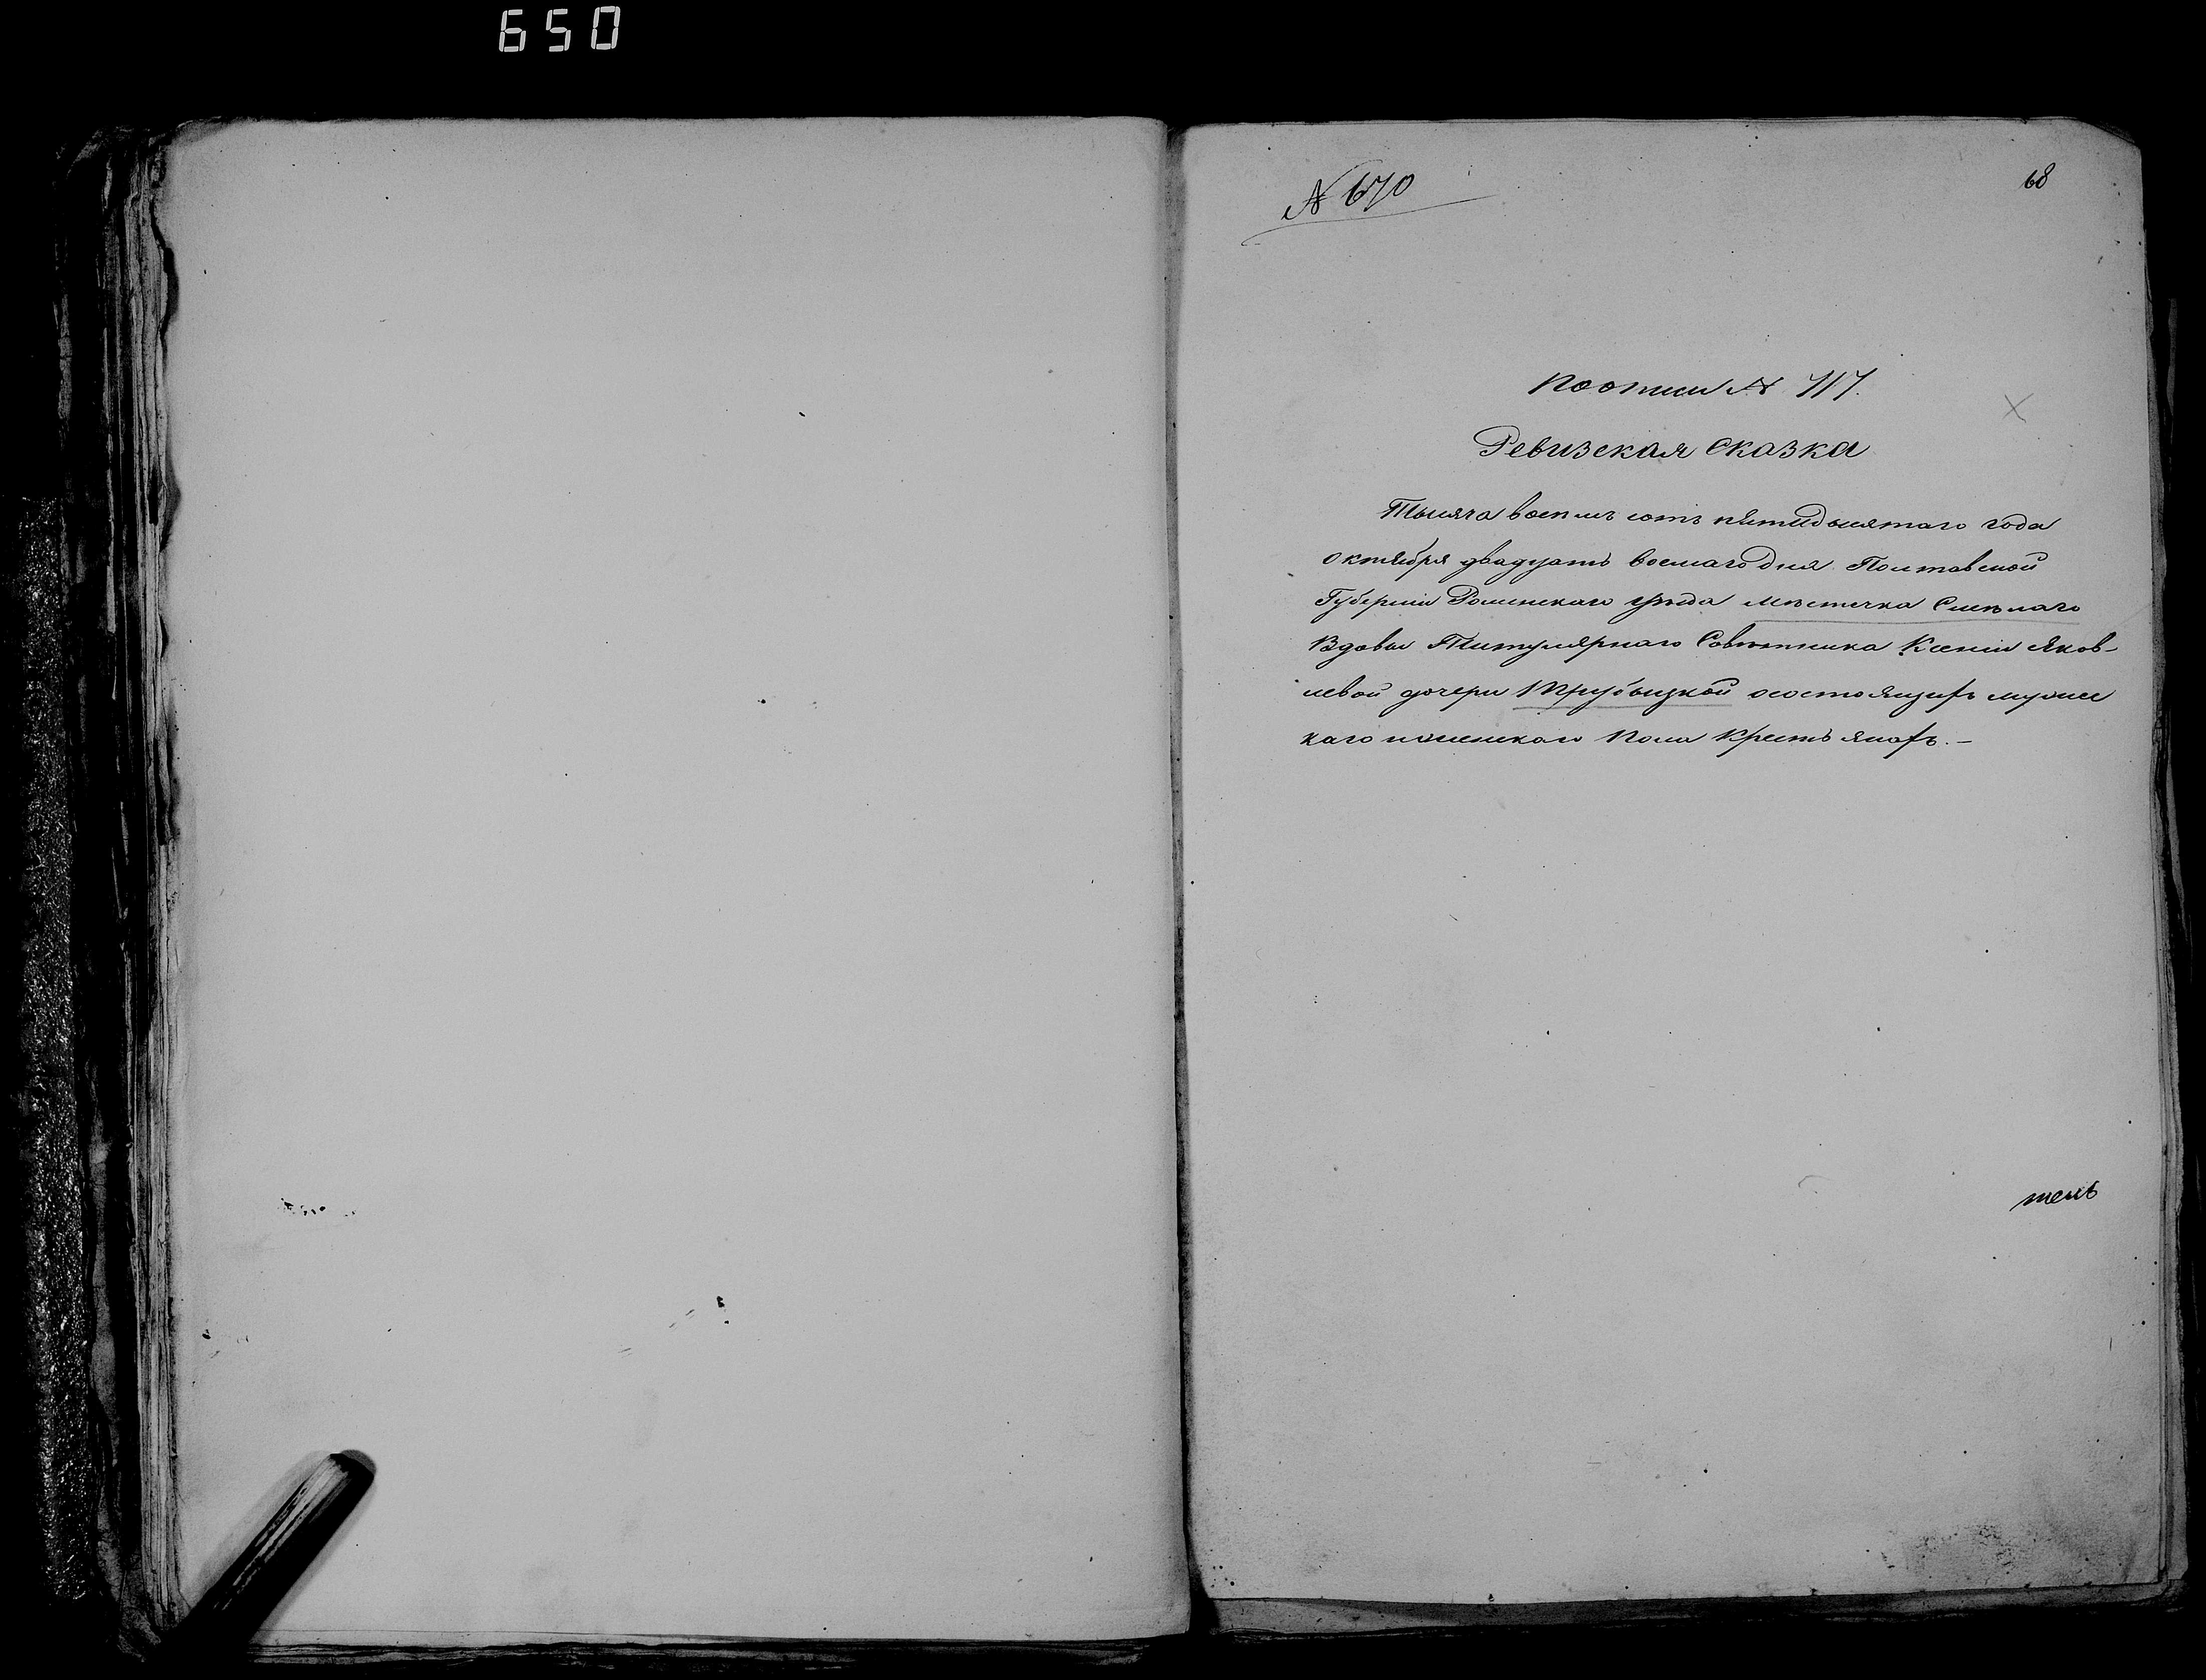 650
№ 670
68
по описи № 717.
Ревизская сказка
Тысяча восемь сотъ пятидесятаго года
октября двадцать восмаго дня Полтавской
Губерніи Роменскаго уѣзда мѣстечка Смѣлаго
Вдовы Титулярнаго Совѣтника Ксеніи Яков-
левой дочери Трубецкой осостоящихъ мужес
каго иженскаго пола крестьянахъ.-